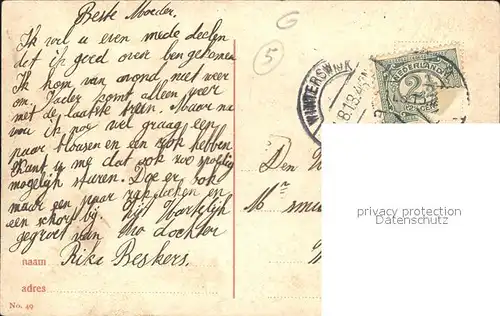 Beste Moeder.
Ik wil u even mede deelen
dat ik goed over ben gekomen
Ik kom van avond niet weer
om. Vader komt alleen weer
met de laatste trein. Maar nu
wou ik nog wel graag een
paar blousen en een rok hebben
Kunt u me dat ook zoo spoedig
mogelijk sturen. Doe er ook
maar een paar zakdoeken en
een schort bij. Zijt Hartelijk
gegroet van Uw dochter
Rika Beskers.
naam
adres
No. 49
G
5
WINTERSWIJK
NEDERLAND
2½
Den H
M
privacy protection
Datenschutz